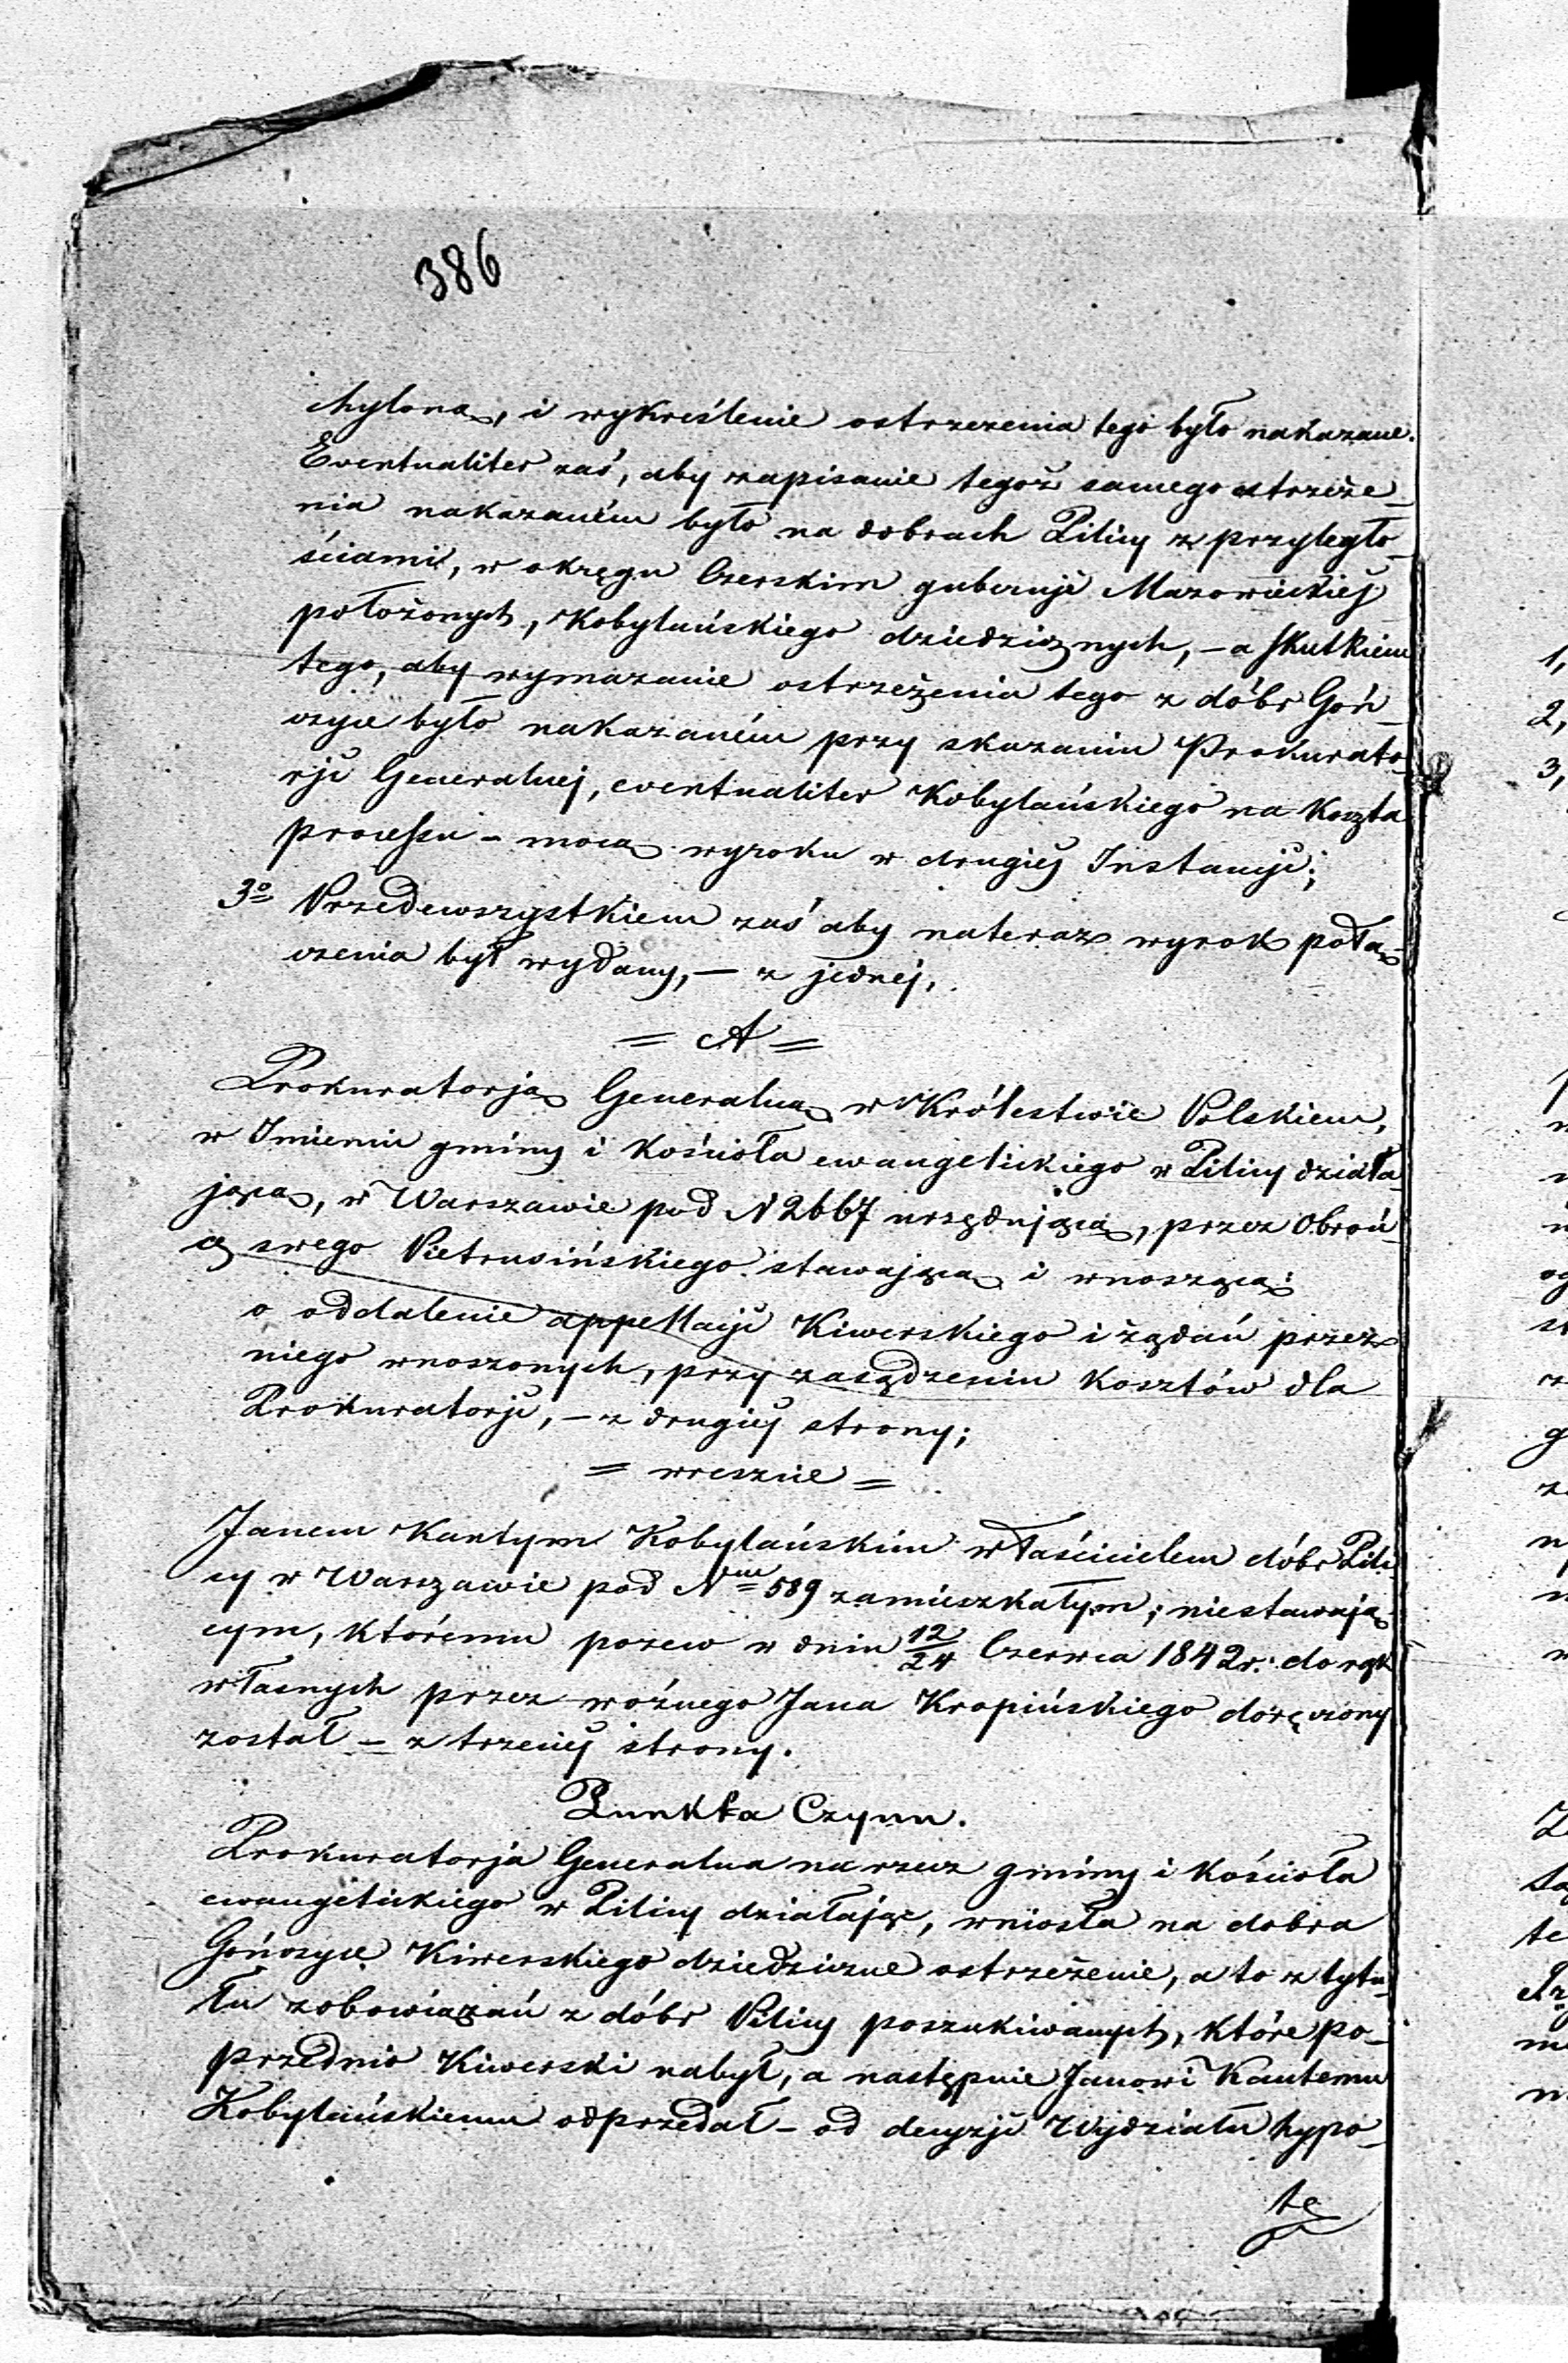 386
chyloną, i wykreślenie ostrzeżenia tego było nakazane.
Eventualiter zaś, aby zapisanie tegoż samego ostrzeże_
nia nakazaném było na dobrach Pilicy z przyległo_
ściami, w okręgu Czerskim gubernji Mazowieckiej
położonych, Kobylańskiego dziedzicznych, – a skutkiem
tego, aby wymazanie ostrzeżenia tego z dóbr Goń_
czyce było nakazaném przy skazaniu Prokurato_
rji Generalnej, eventualiter Kobylańskiego na koszta
processu – mocą wyroku w drugiej Instancji;
3o Przedewszystkiem zaś aby nateraz wyrok połą_
czenia był wydany, — z jednej,
= A =
Prokuratorją Generalną w Królestwie Polskiem,
w Imieniu gminy i kościoła ewangelickiego w Pilicy działa_
jącą, w Warszawie pod N 2667 urzędującą, przez Obroń_
cę swego Pietrusińskiego stawającą i wnoszącą:
o oddalenie appellacji Kiwerskiego i żądań przez
niego wnoszonych, przy zasądzeniu kosztów dla
Prokuratorji, – z drugiej strony;
= wreszcie =
Janem Kantym Kobylańskim właścicielem dóbr Pili_
cy w Warszawie pod Nm 589 zamieszkałym; niestawają_
cym, któremu pozew w dniu 12/24 Czerwca 1842 r. do rąk
własnych przez woźnego Jana Kropińskiego doręczony
został – z trzeciej strony.
Punkta Czynu.
Prokuratorja Generalna na rzecz gminy i kościoła
ewangelickiego w Pilicy działając, wniosła na dobra
Gończyce Kiwerskiego dziedziczne ostrzeżenie, a to z tytu_
łu zobowiązań z dóbr Pilicy poszukiwanych, które po_
przednio Kiwerski nabył, a następnie Janowi Kantemu
Kobylańskiemu odprzedał – od decyzji Wydziału hypo_
te
1,
2,
3,